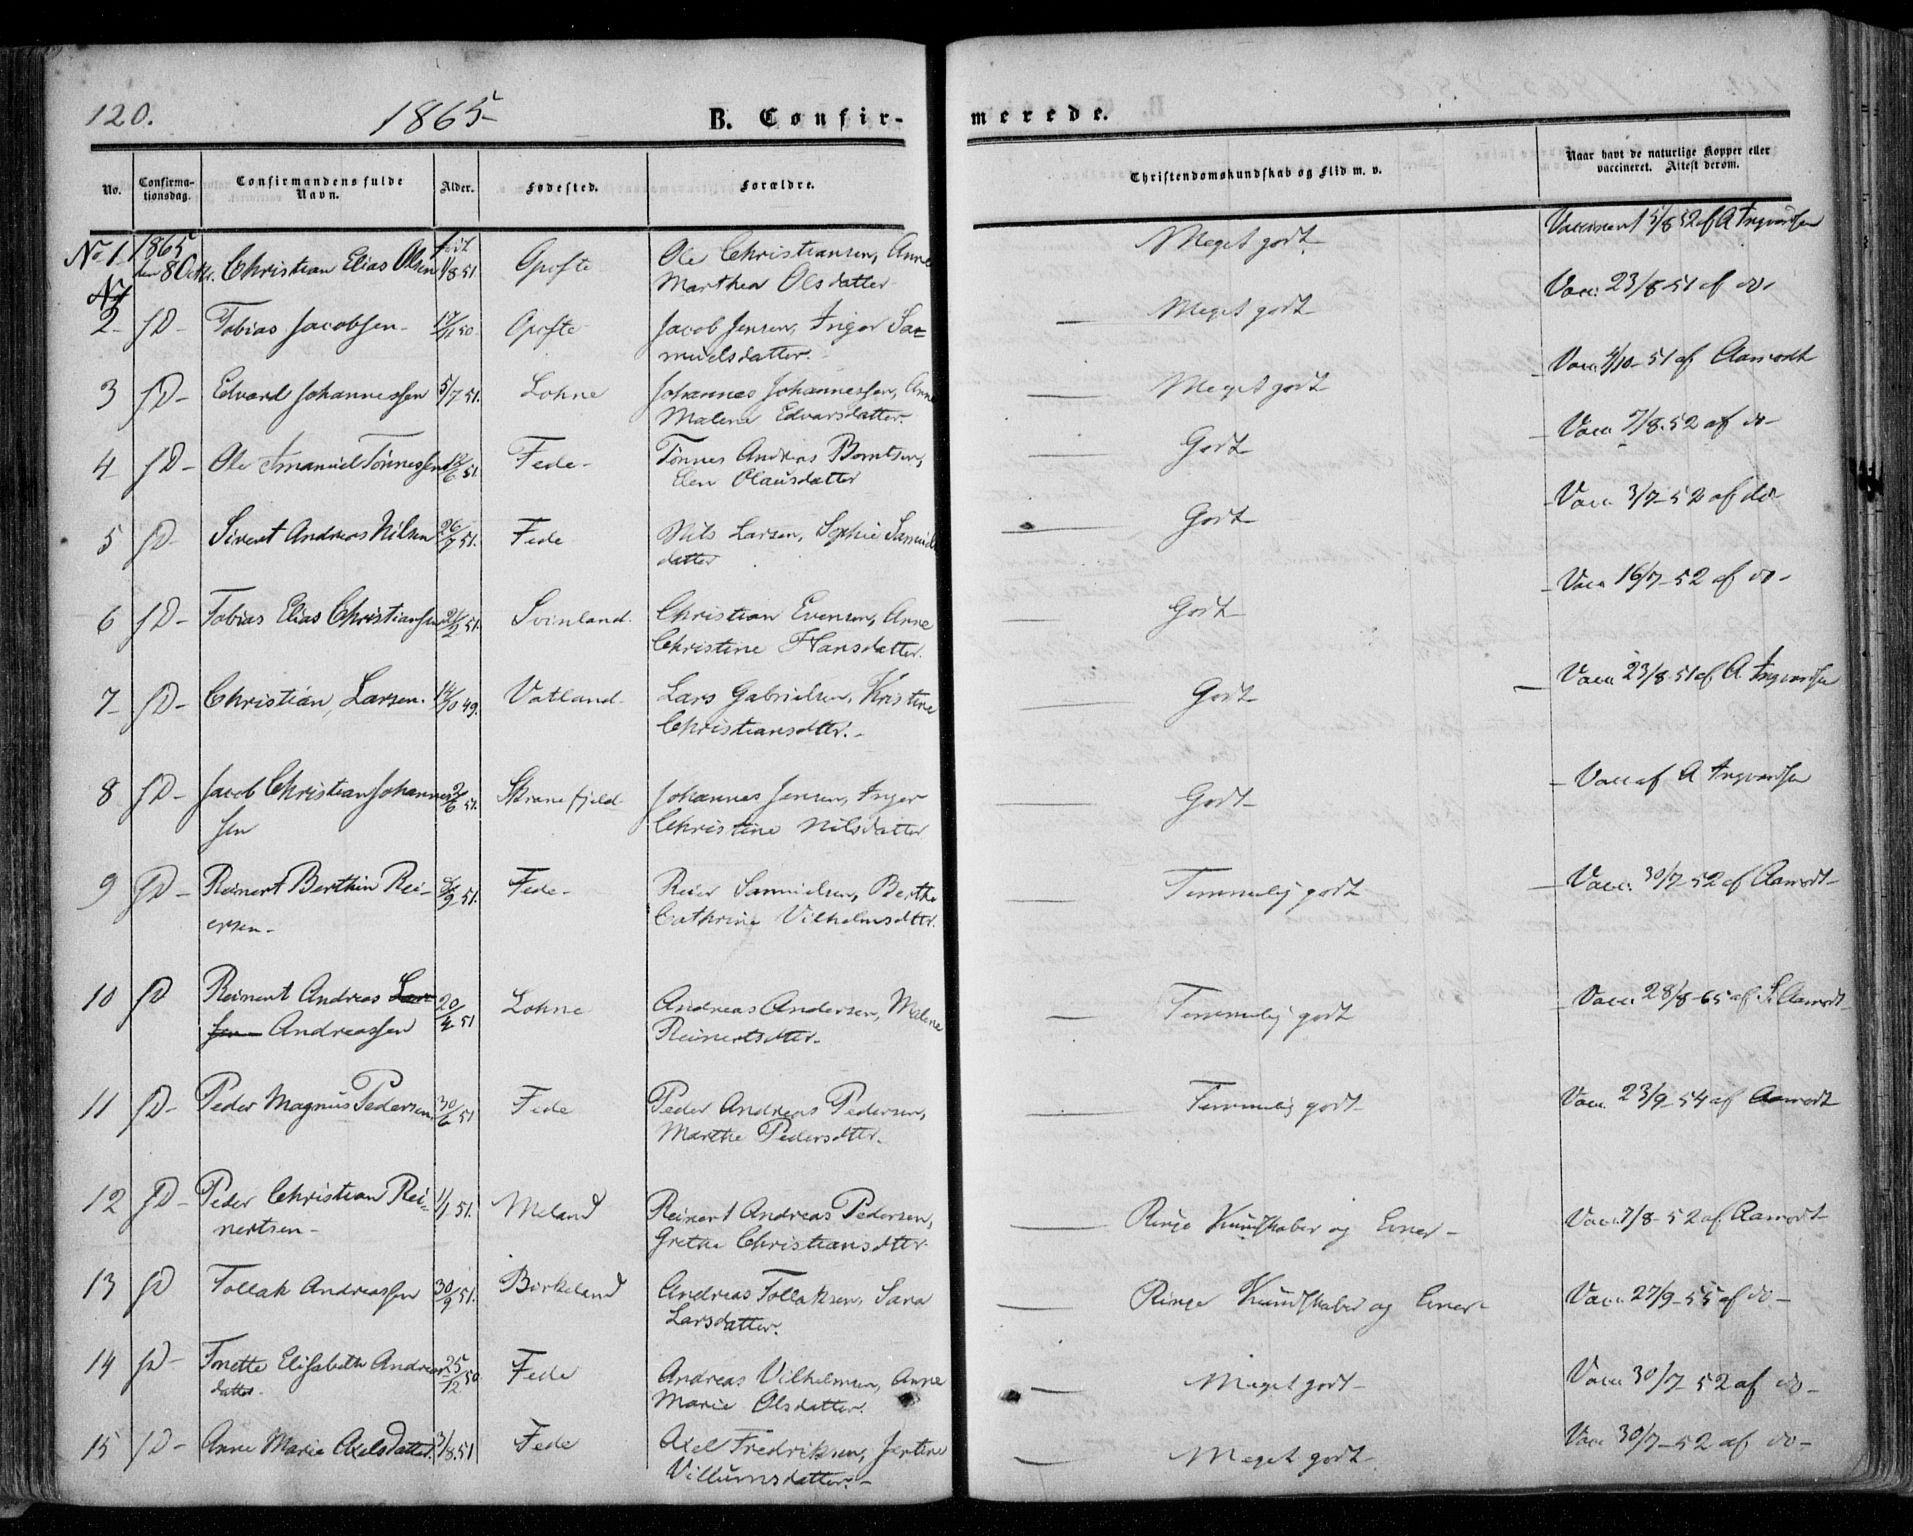 120. 1865 B. Confir- merede.
No. Confirma-tionsdag. Confirmandens fulde Navn. Alder. Fødested. Forældre. Christendomskundskab og Flid m. v. Naar havt de naturlige Kopper eller vaccineret. Attest derom.
No 1. 1865 den 8 Octbr. Christian Elias Olsen født 1/8 51. Opofte Ole Christiansen, Anne Meget godt Vaccineret 15/8 52 af A Ingvardsen
Marthea Olsdatter
2 JD- Tobias Jacobsen 50. Opofte Jacob Jensen, Inger Sa- Meget godt Vacc: 23/8-51 af do-
muelsdatter.
3 JD- Edvard Johannessen 5/7 51. Lohne Johannes Johannessen, Anne Meget godt Vacc. /10-51 af Aamodt
Malene Edvarsdatter.
4 JD- Ole Emanuel Tönnessen /6 51. Fede- Tönnes Andreas Berntsen, Godt Vacc. 7/8-52 af do-
Elen Olausdatter
5 JD- Sivert Andreas Nilsen 26/7 51. Fede Nils Larsen, Sophie Samuels Godt Vacc. 3/7-52 af do-
datter
6 JD- Tobias Elias Christiansen 2/2 51. Svinland. Christian Evensen, Anne Godt Vacc. 16/7-52 af do-
Christine Hansdatter.
7 JD- Christian Larsen. 14/10 49. Vatland. Lars Gabrielsen, Kristine Godt Vacc. 23/8-51 af A Ingvardsen
Christiansdtter.
8 JD- Jacob Christian Johannes /6 51. Skranefjeld Johannes Jensen, Inger Godt Vacc af A Ingvardsen
sen Christine Nilsdatter
9 JD- Reinert Berthin Rei- /9 51. Fede- Reier Samuelsen, Berthe Temmelig godt Vacc. 30/7-52 af Aamodt-
ersen- Cathrine Vilhelmsdtter.
10 JD Reinert Andreas Lar 20/4 51 Lohne Andreas Andersen, Malene Temmelig godt Vacc. 28/8-65 af S. Aamodt-
sen Andreassen Reinertsdtter.
11 JD- Peder Magnus Pedersen 30/6 51 Fede Peder Andreas Pedersen, Temmelig godt Vacc. 23/9-54 af Aamodt
Marthe Pedersdtter.
12 JD- Peder Christian Rei- 11/1 51. Meland Reinert Andreas Pedersen, Ringe Kundskaber og Evner- Vacc. 7/8-52 af Aamodt-
nertsen- Grethe Christiansdtter
13 JD Tollak Andreassen 30/9 51. Birkeland Andreas Tollaksen, Sara Ringe Kundskaber og Evner- Vacc. 27/9-55 af do-
Larsdatter.
14 JD- Tonette Elisabeth Andreas 25/12 50 Fede Andreas Vilhelmsen, Anne Meget godt- Vacc. 30/7-52 af do-
datter. Marie Olsdatter.
15 JD- Anne Marie Axelsdatter. 31/8 51 Fede Axel Fredriksen, Jertine Meget godt Vacc 30/7-52 af do-
Villumsdatter.-